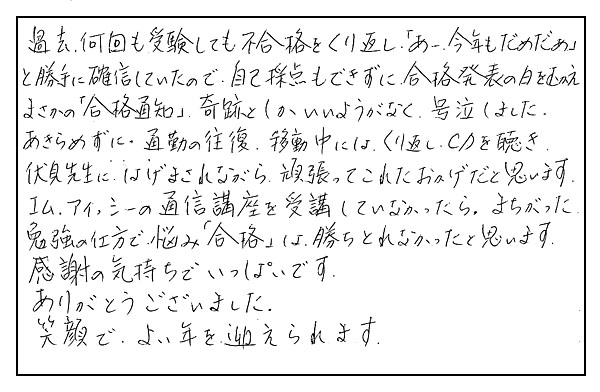 過去、何回も受験しても不合格をくり返し、「あー、今年もだめだぁ」
と勝手に確信していたので、自己採点もできずに、合格発表の日をむかえ
まさかの「合格通知」、奇跡としかいいようがなく、号泣しました。
あきらめずに、通勤の往復、移動中には、くり返しCDを聴き、
伏見先生に、はげまされながら、頑張ってこれたおかげだと思います。
エム、アイ、シーの通信講座を受講していなかったら、まちがった
勉強の仕方で、悩み「合格」は、勝ちとれなかったと思います。
感謝の気持ちでいっぱいです。
ありがとうございました。
笑顔で、よい年を迎えられます。